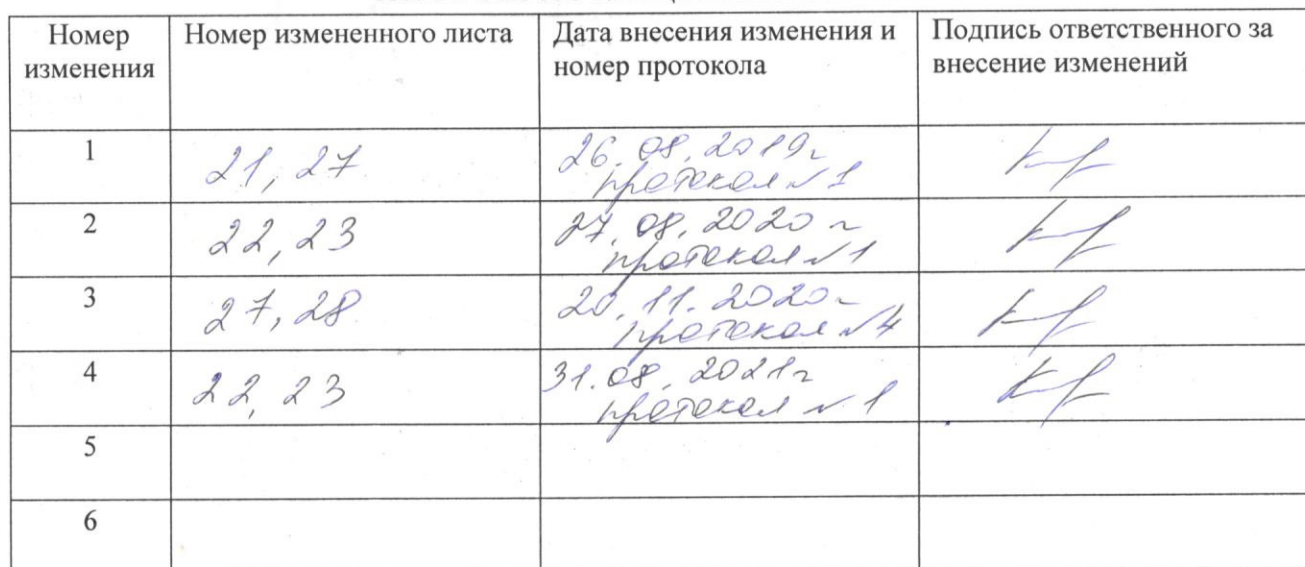 Номер изменения
Номер измененного листа
Дата внесения изменения и номер протокола
Подпись ответственного за внесение изменений
1
21, 27
26.08.2019г
протокол №1
2
22, 23
27.08.2020г
протокол №1
3
27, 28
20.11.2020г
протокол №4
4
22, 23
31.08.2021г
протокол №1
5
6